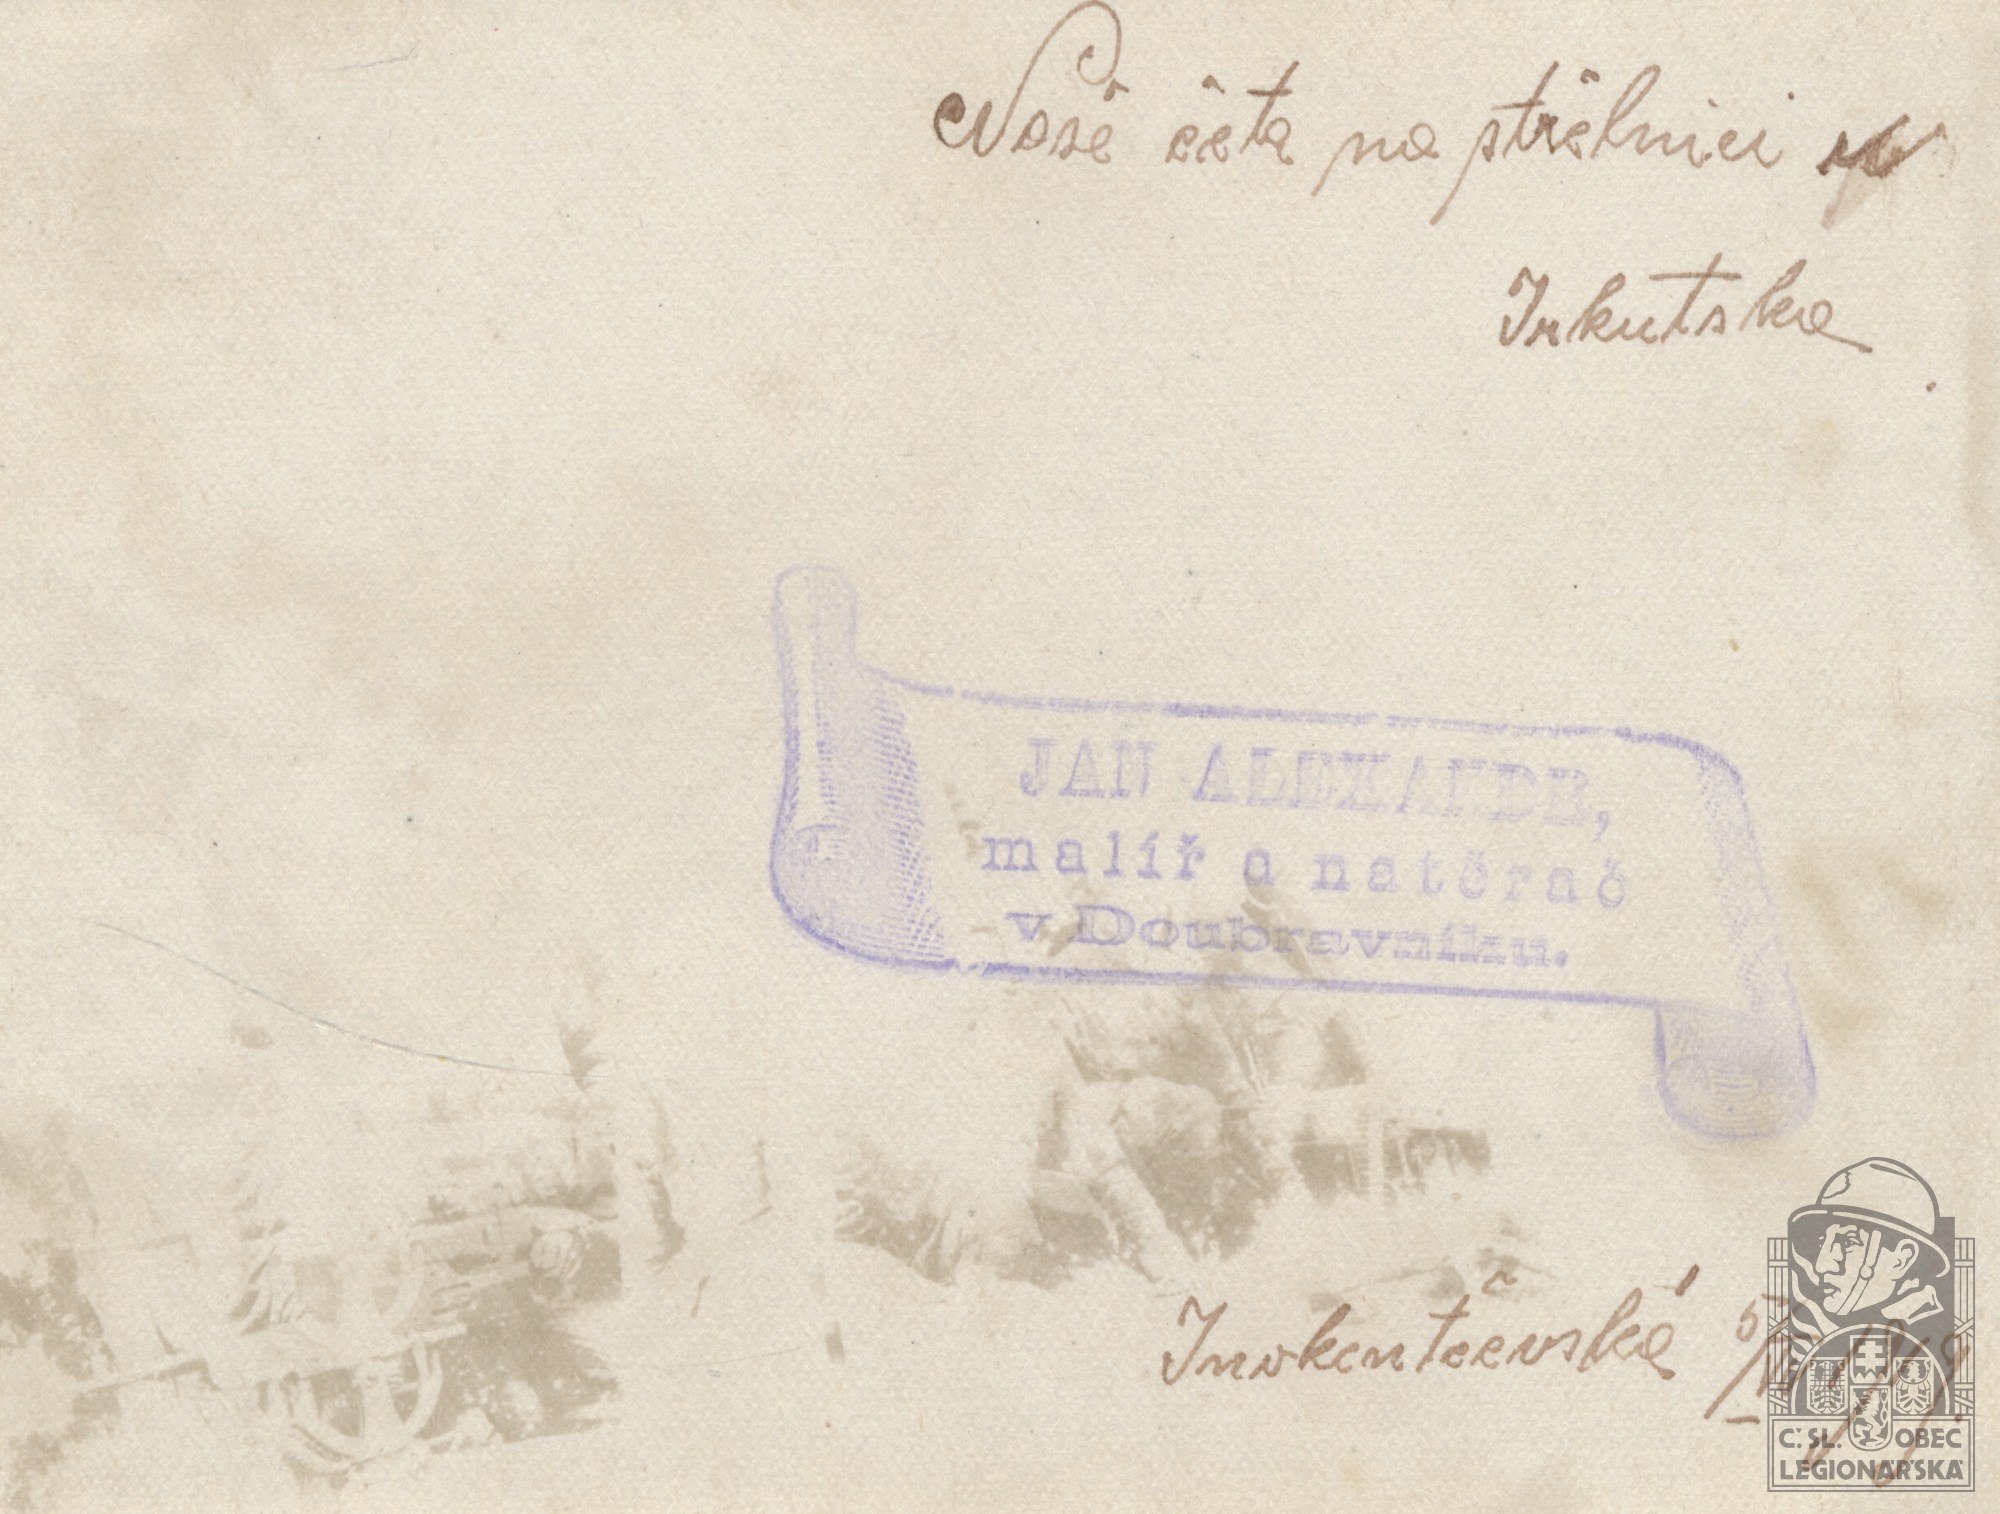 Naše četa na střelnici u
Irkutska
JAN ALEXANDR,
malíř a natěrač
v Doubravníku.
Inokentěevská 5/
Č. SL. OBEC
LEGIONÁŘSKÁ